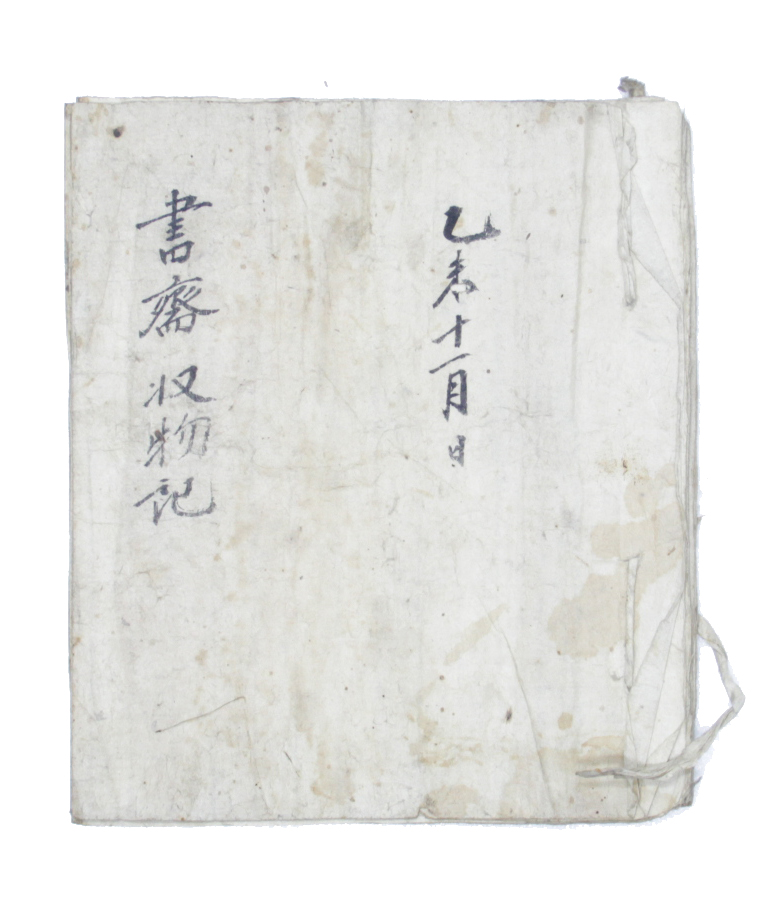 乙亥十一月 日
書齋収物記